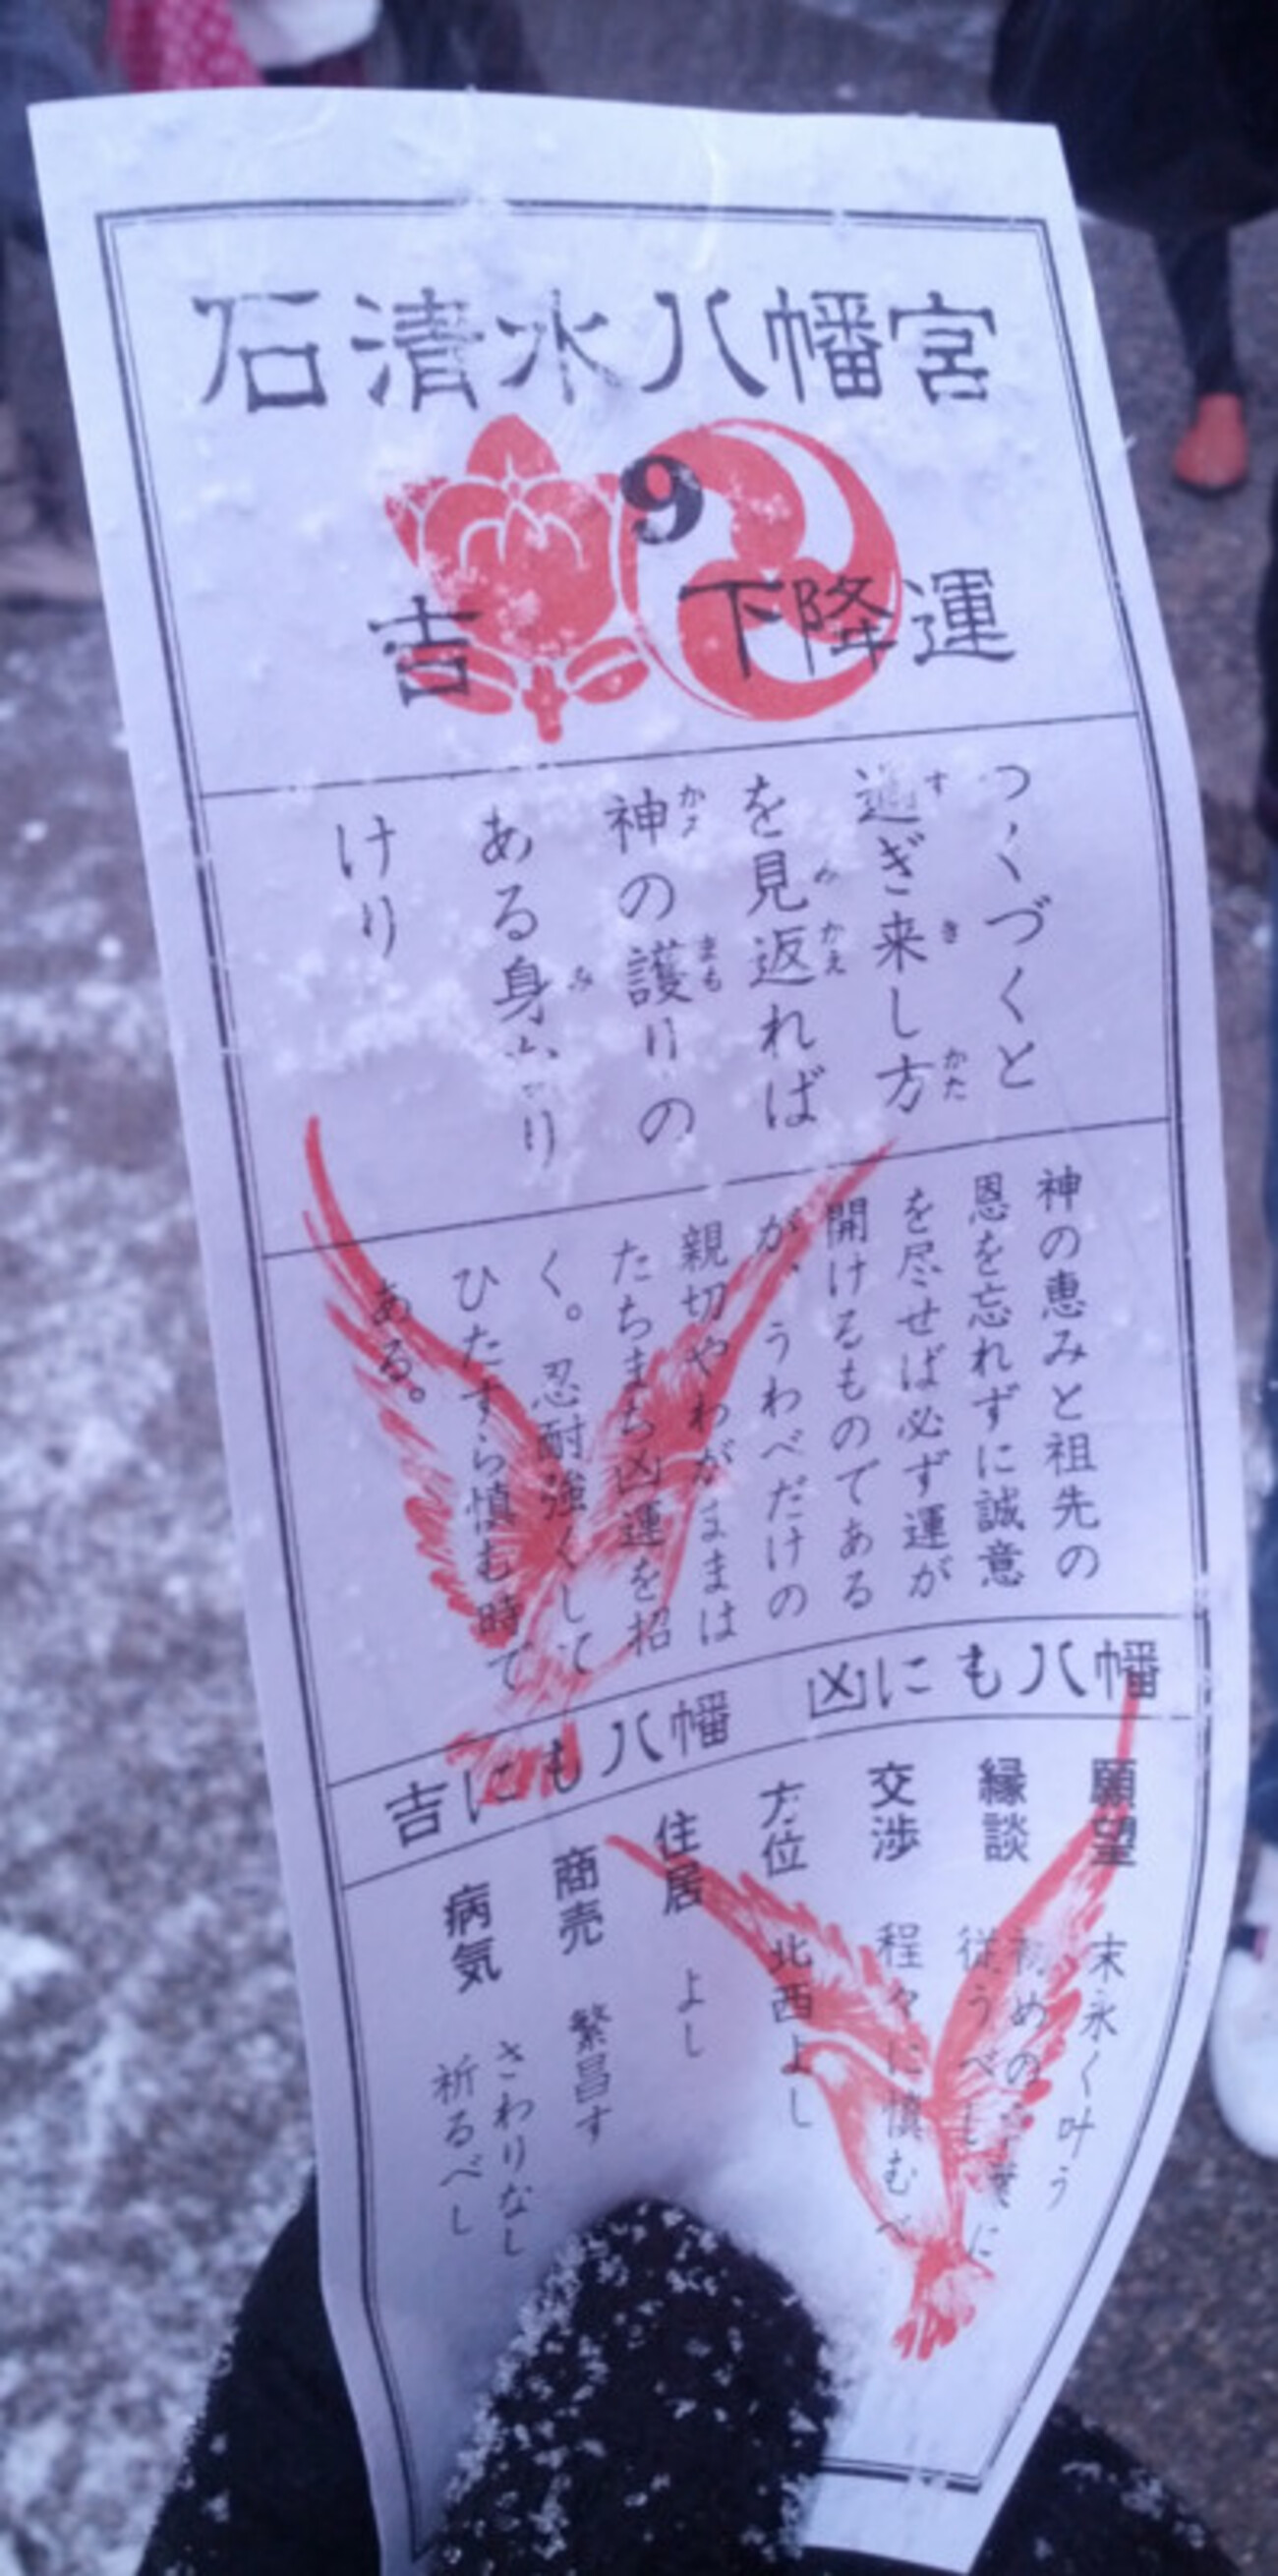 石清水八幡宮
9
吉 下降運
つくづくと
過ぎ来し方
を見返れば
神の護りの
ある身なり
けり
神の恵みと祖先の
恩を忘れずに誠意
を尽せば必ず運が
開けるものである
が、うわべだけの
親切やわがままは
たちまち凶運を招
く。忍耐強くして
ひたすら慎む時で
ある。
吉にも八幡 凶にも八幡
願望 末永く叶う
縁談 初めの言葉に
従うべし
交渉 程々に慎むべ
方位 北西よし
住居 よし
商売 繁昌す
病気 さわりなし
祈るべし